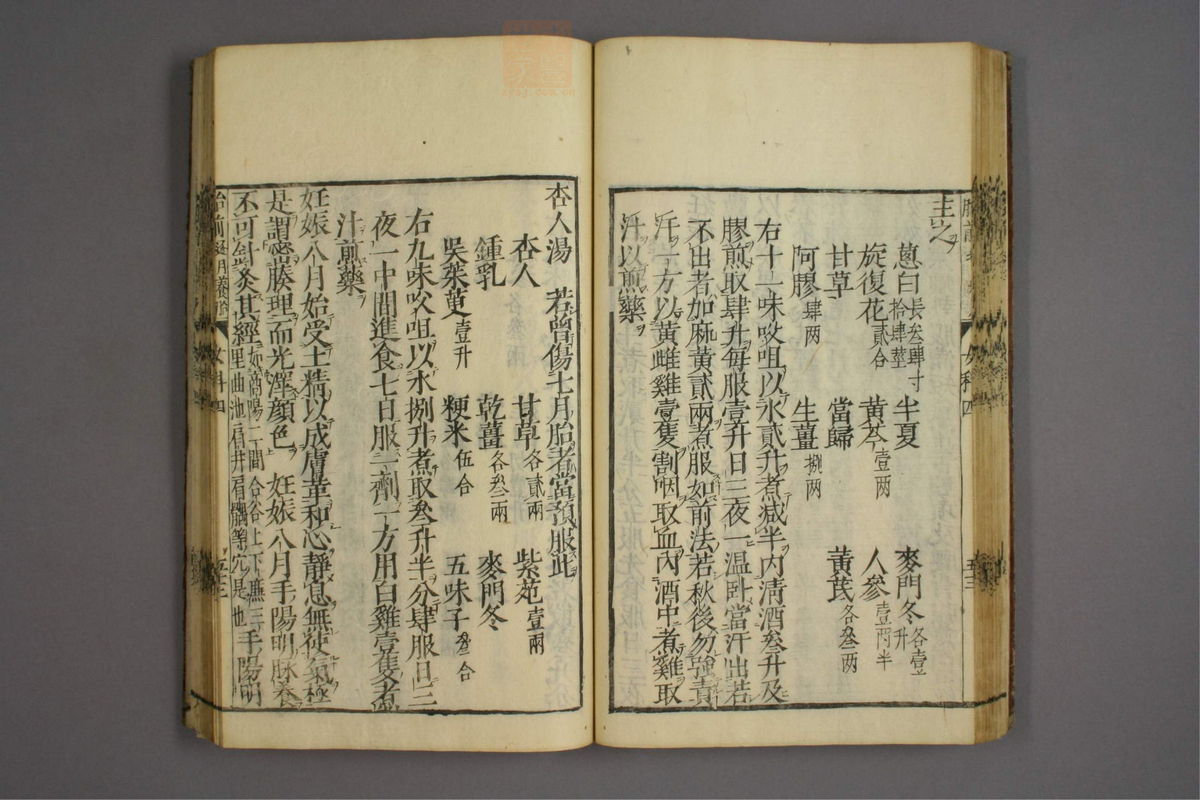 主之
葱白長叁肆寸拾肆莖 半夏 麥門冬各壹升
旋復花貳合 黃芩壹两 人參壹两半
甘草 當歸 黃芪各叁两
阿膠肆两 生薑捌两
右十一味㕮咀以水貳升煮减半内清酒叁升及
膠煎取肆升每服壹升日三夜一温卧當汗出若
不出者加麻黃貳兩煮服如前法若秋後勿強責
汗一方以黃雌雞壹隻割咽取血内酒中煮雞取
汁以煎藥
杏人湯 若曾傷七月胎者當預服此
杏人 甘草各貳兩 紫菀壹兩
鍾乳 乾薑各叁兩 麥門冬
吳茱萸壹升 粳米伍合 五味子叁合
右九味㕮咀以水捌升煮取叁升半分肆服日三
夜一中間進食七日服一劑一方用白雞壹隻煮
汁煎藥
妊娠八月始受土精以成膚革和心靜息無使氣極
是謂密腠理而光澤顏色 妊娠八月手陽明脉養
不可針灸其經如商陽二間合谷上下廉三里曲池肩井肩髃等穴是也手陽明
胎前逐月養胎 女科四 五三
女科四